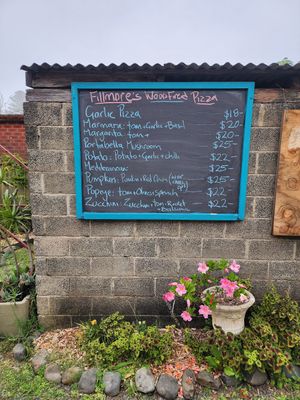 Fillmore's Woodfired Pizza
Garlic Pizza $18-
Marinara: tom+Garlic+Basil $20-
Margarita tom+ $20-
Portabella Mushroom $25-
Potato: Potato+Garlic+chilli $22-
Mediteranean $25-
Pumpkin: Pumkin+Red Onion $25-
Popeye: tom+Olives+Spinach $22
Zucchini: Zucchini+tom+Rocket+ $22
Balsamic